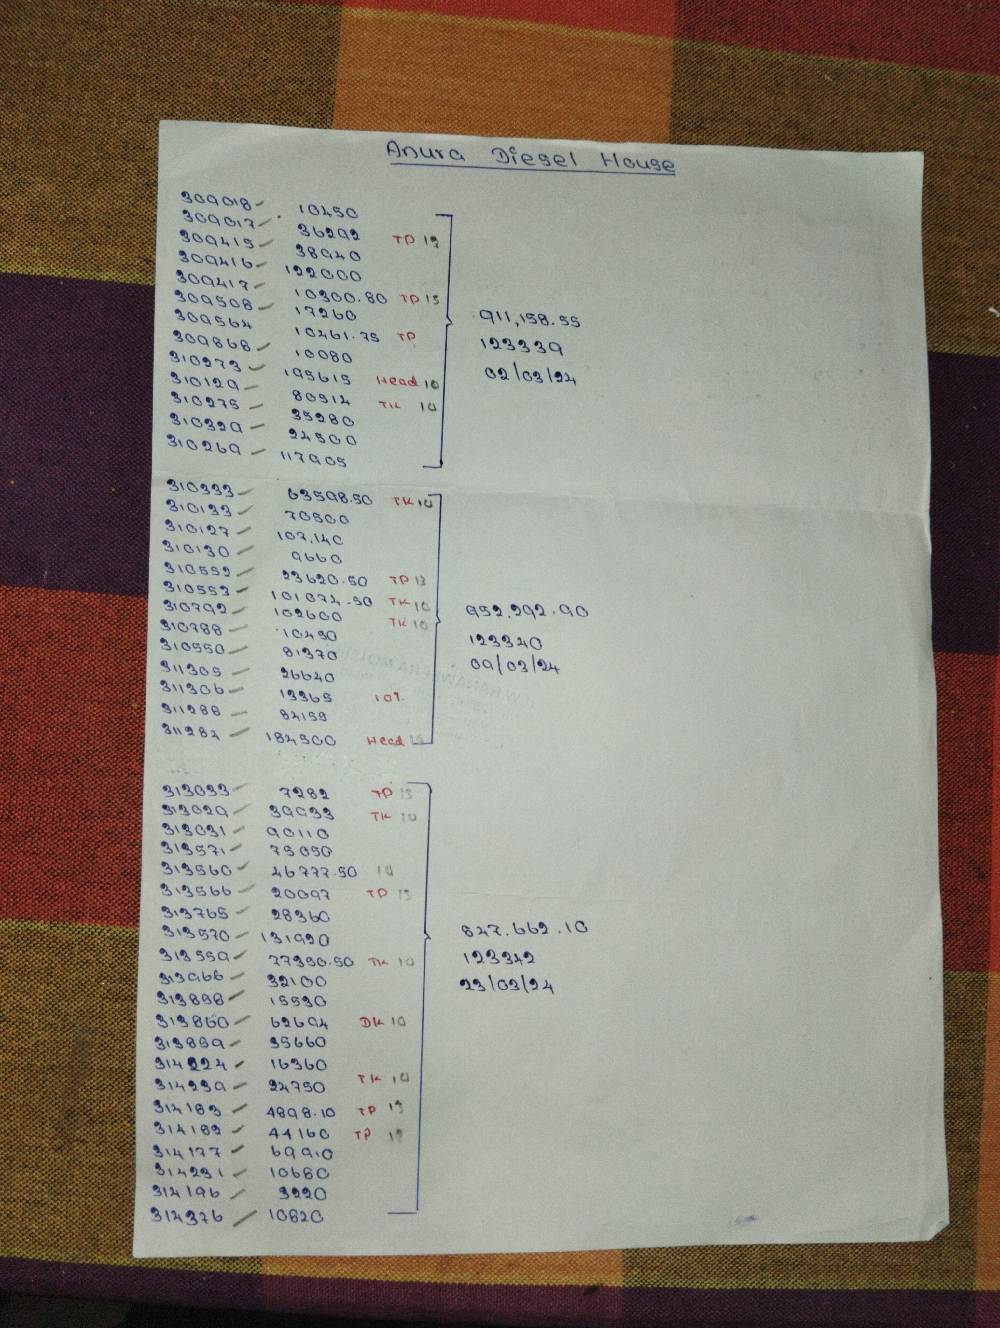 Anura Diesel House
309018 - 10450
309017 - 36292 TP 12
309415 - 38940
309416 - 122000
309417 - 10300.80 TP 15
309508 - 17260
309564 10461.75 TP
309868 - 10080
310273 - 195615 Head 10
310129 - 80514 TK 10
310275 - 35280
310329 - 24300
310269 - 117905
911,158.55
123339
02/03/24
310333 - 63598.50 TK 10
310133 - 70500
310127 - 107,140
310130 - 9660
310552 - 23620.50 TP 13
310553 - 101074.50 TK 10
310792 - 102600 TK 10
310788 - 10430
310550 - 81370
311305 - 26640
311306 - 13365 10%
311288 - 84159
311284 - 184300 Head
952,292.90
123340
09/03/24
313033 - 7282 TP 15
313029 - 39033 TK 10
313031 - 90110
313571 - 75050
313560 - 46777.50 10
313566 - 20097 TP 15
313765 - 28360
313570 - 131920
313559 - 77350.50 TK 10
313966 - 32100
313898 - 15930
313860 - 62694 DK 10
313859 - 35660
314224 - 16360
314239 - 24750 TK 10
314183 - 4898.10 TP 15
314182 - 44160 TP 12
314177 - 69910
314231 - 10680
314196 - 3220
314376 - 10820
847.662.10
123342
23/03/24